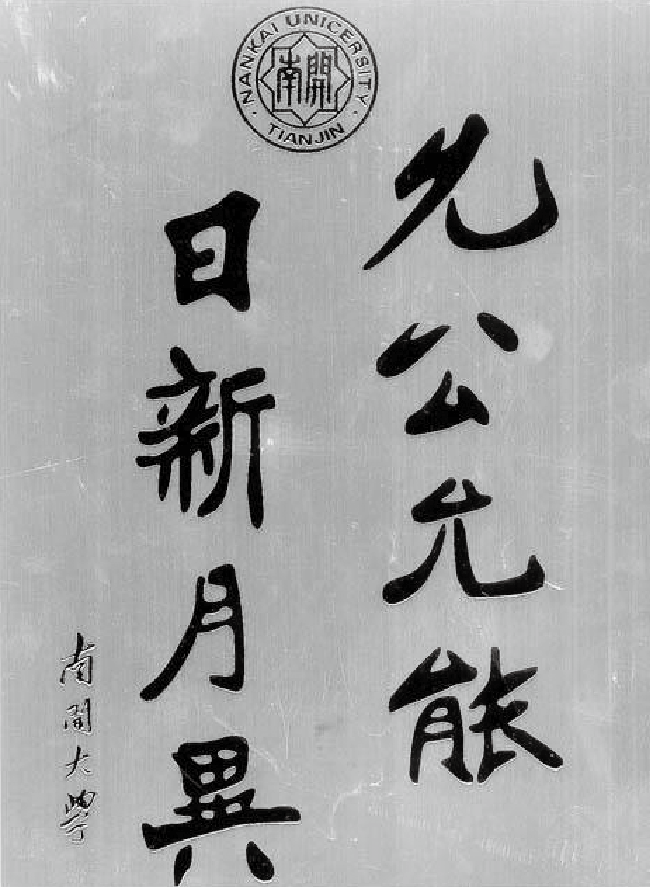 NANKAI UNIVERSITY
南開
TIANJIN
允公允能
日新月異
南開大學